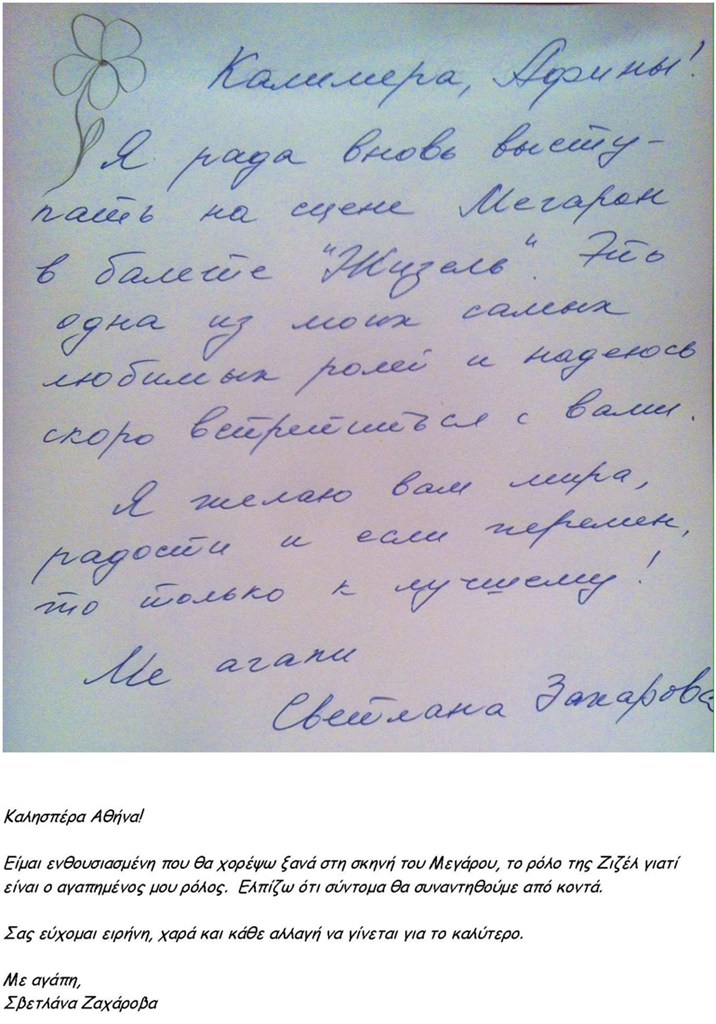 Калимера, Афины!
Я рада вновь высту-
пать на сцене Мегарон
в балете "Жизель". Это
одна из моих самых
любимых ролей и надеюсь
скоро встретиться с вами.
Я желаю вам мира,
радости и если перемен,
то только к лучшему!
Ме агапи
Светлана Захарова
Καλησπέρα Αθήνα!
Είμαι ενθουσιασμένη που θα χορέψω ξανά στη σκηνή του Μεγάρου, το ρόλο της Ζιζέλ γιατί
είναι ο αγαπημένος μου ρόλος. Ελπίζω ότι σύντομα θα συναντηθούμε από κοντά.
Σας εύχομαι ειρήνη, χαρά και κάθε αλλαγή να γίνεται για το καλύτερο.
Με αγάπη,
Σβετλάνα Ζαχάροβα